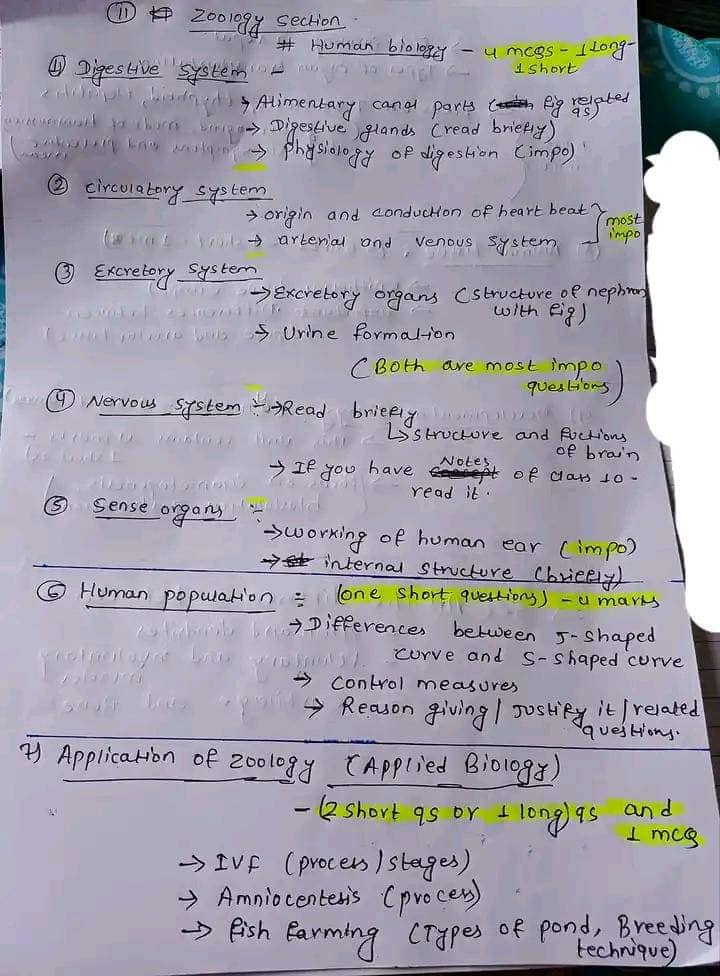 (11) Zoology section.
# Human biology - 4 mcqs - 1 long-
1 short
① Digestive system -
→ Alimentary canal parts ( fig related qs)
→ Digestive glands (read briefly)
→ Physiology of digestion (impo)
② circulatory system
→ origin and conduction of heart beat
→ arterial and venous system
most impo
③ Excretory system
→ Excretory organs (structure of nephron
with fig)
→ Urine formation
(Both are most impo
questions)
④ Nervous system :- → Read briefly
↳ structure and fuctions
of brain
→ If you have Notes of class 10 -
read it.
⑤ Sense organs :-
→ working of human ear (impo)
→ internal structure (briefly)
⑥ Human population = (one short questions) - 4 marks
→ Differences between J-shaped
curve and S-shaped curve
→ control measures
→ Reason giving / Justify it / related
questions.
7) Application of zoology (Applied Biology)
- (2 short qs or 1 long) qs and
1 mcq
→ IVF (process / stages)
→ Amniocentesis (process)
→ fish farming (Types of pond, Breeding
technique)